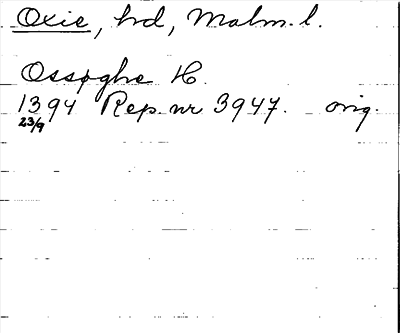 Oxie, hd, Malm. l.
Ossøghe H.
1394 Rep. nr 3947. orig.
23/9